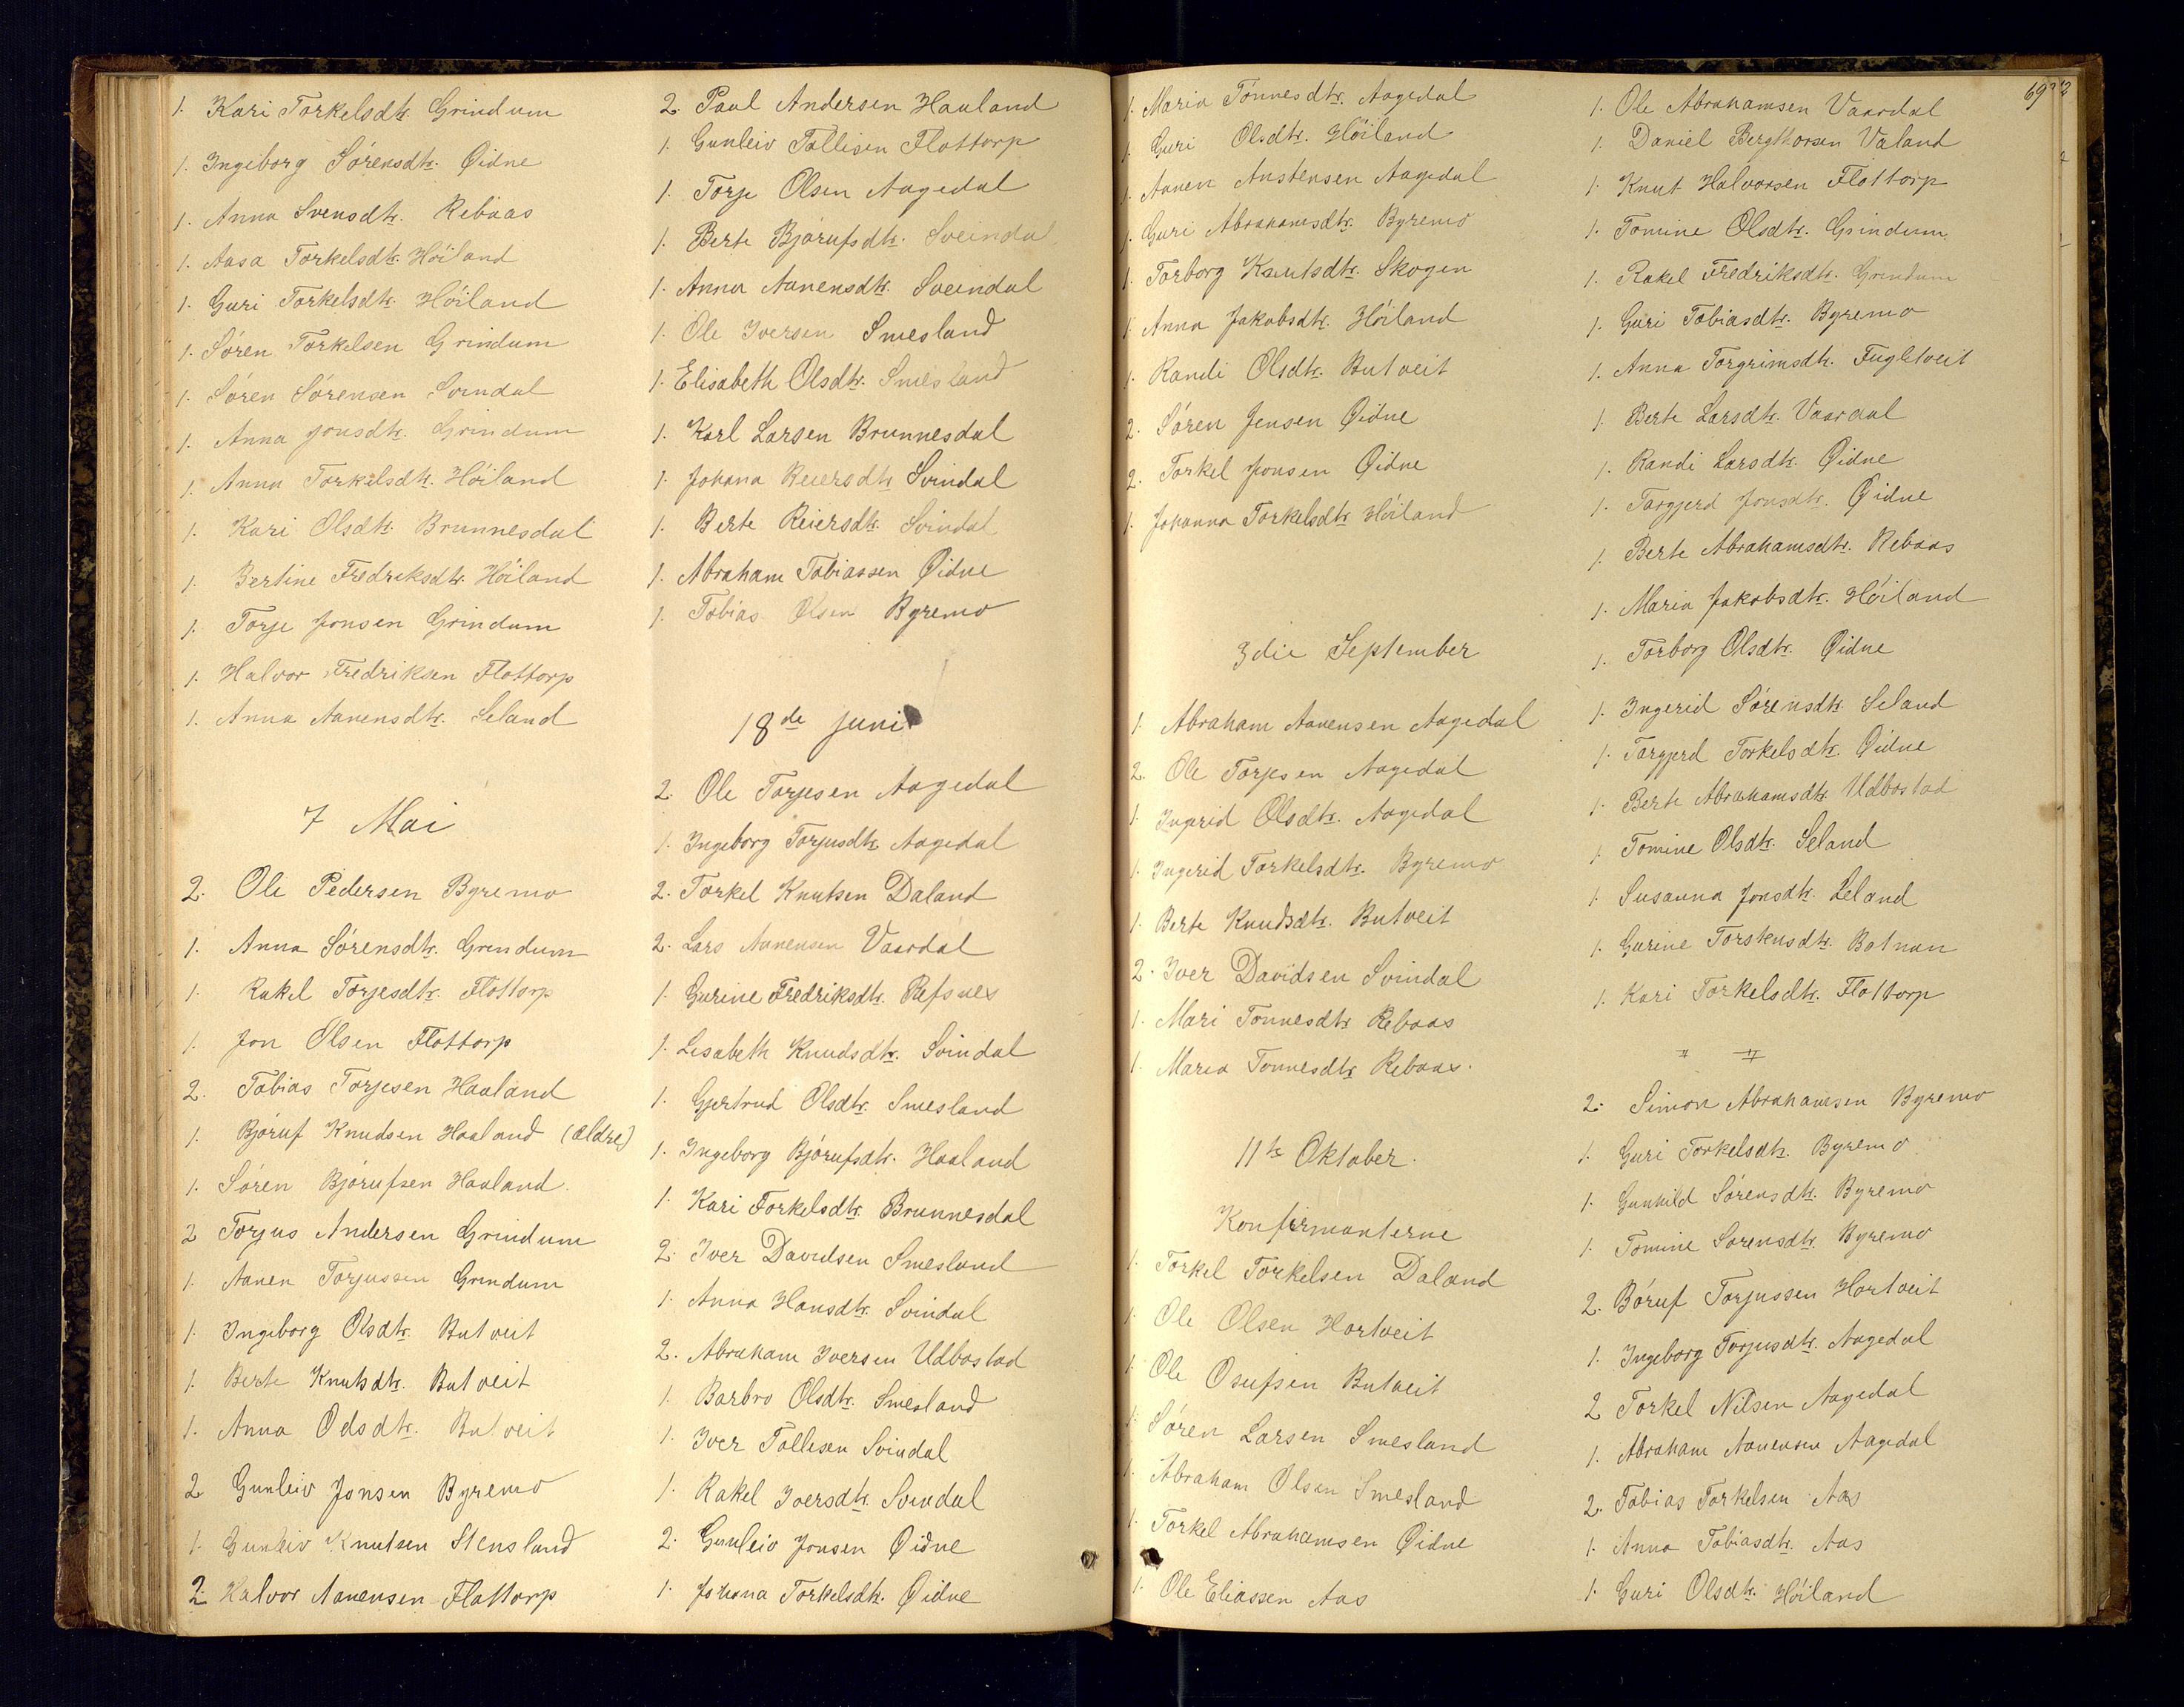 1. Kari Torkelsdtr. Grindum
1. Ingeborg Sørensdtr. Øidne
1. Anna Svensdtr. Rebaas
1. Aasa Torkelsdtr. Höiland
1. Guri Torkelsdtr. Höiland
1. Sören Torkelsen Grindum
1. Sören Sörensen Svindal
1. Anna Jonsdtr. Grindum
1. Anna Torkelsdtr. Höiland
1. Kari Olsdtr. Brunnesdal
1. Bertine Fredriksdtr. Höiland
1. Torje Jonsen Grindum
1. Halvor Fredriksen Flottorp
1. Anna Aanensdtr. Seland
7 Mai
2. Ole Pedersen Byremo
1. Anna Sörensdtr. Grindum
1. Rakel Torjesdtr. Flottorp
1. Jon Olsen Flottorp
2. Tobias Torjesen Haaland
1. Björuf Knudsen Haaland (ældre)
1. Sören Björufsen Haaland.
2 Torjus Andersen Grindum
1. Aanen Torjussen Grindum
1. Ingeborg Olsdtr. Butveit
1. Berte Knutsdtr. Butveit
1. Anna Odsdtr. Butveit
2 Gunleiv Jonsen Byremo
1. Gunleiv Knutsen Stensland
2 Halvor Aanensen Flottorp
2. Paul Andersen Haaland
1. Gunleiv Tollisen Flottorp
1. Torje Olsen Aagedal
1. Berte Björufsdtr. Sveindal
1. Anna Aanensdtr. Sveindal
1. Ole Iversen Smesland
1. Elisabeth Olsdtr. Smesland
1. Karl Larsen Brunnesdal
1. Johana Reiersdtr. Svindal
1. Berte Reiersdtr. Svindal
1. Abraham Tobiassen Øidne
1. Tobias Olsen Byremo
18de Juni
2. Ole Torjesen Aagedal
1. Ingeborg Torjusdtr. Aagedal
2. Torkel Knutsen Daland
2. Lars Aanensen Vaardal
1. Gurine Fredriksdtr. Refsnes
1. Lisabeth Knudsdtr. Svindal
1. Gjertrud Olsdtr. Smesland
1. Ingeborg Björufsdtr. Haaland
1. Kari Torkelsdtr. Brunnesdal
2. Iver Davidsen Smesland
1. Anna Hansdtr. Svindal
2. Abraham Iversen Udbostad
1. Barbro Olsdtr. Smesland
1. Iver Tollisen Svindal
1. Rakel Iversdtr. Svindal
2. Gunleiv Jonsen Øidne
1. Johana Torkelsdtr. Øidne
1. Maria Tönnesdtr. Aagedal
1. Guri Olsdtr. Höiland
1. Aanen Anstensen Aagedal
1. Guri Abrahamsdtr. Byremo
1. Torborg Knutsdtr. Skogen
1. Anna Jakobsdtr. Höiland
1. Randi Olsdtr. Butveit
2. Sören Jensen Øidne
2. Torkel Jonsen Øidne
1. Johanna Torkelsdtr. Höiland
3die September
1. Abraham Aanensen Aagedal
2. Ole Torjesen Aagedal
1. Ingerid Olsdtr. Aagedal
1. Ingerid Torkelsdtr. Byremo
1. Berte Knudsdtr. Butveit
2. Iver Davidsen Svindal
1. Mari Tönnesdtr Rebaas
1. Maria Tonnesdtr Rebaas.
11te Oktober.
Konfirmanterne
1. Torkel Torkelsen Daland
1. Ole Olsen Hortveit
1. Ole Osufsen Butveit
1. Sören Larsen Smesland
1. Abraham Olsen Smesland
1. Torkel Abrahamsen Øidne
1. Ole Eliassen Aas
69
1. Ole Abrahamsen Vaardal
1. Daniel Bergthorsen Valand
1. Knut Halvorsen Flottorp
1. Tomine Olsdtr. Grindum
1. Rakel Fredriksdtr. Grindum
1. Guri Tobiasdtr. Byremo
1. Anna Torgrimsdtr. Fugletveit
1. Berte Larsdtr. Vaardal
1. Randi Larsdtr. Øidne
1. Targjerd Jonsdtr. Øidne
1. Berte Abrahamsdtr. Rebaas
1. Maria Jakobsdtr. Höiland
1. Torborg Olsdtr. Øidne
1. Ingerid Sörensdtr. Seland
1. Targjerd Torkelsdtr. Øidne
1. Berte Abrahamsdtr. Udbostad
1. Tomine Olsdtr. Seland
1. Susanna Jonsdtr. Leland
1. Gurine Torstensdtr. Botnan
1. Kari Torkelsdtr. Flottorp
2. Simon Abrahamsen Byremo
1. Guri Torkelsdtr. Byremo
1. Gunhild Sörensdtr. Byremo
1. Tomine Sorensdtr. Byremo
2. Böruf Torjussen Hortveit
1. Ingeborg Torjusdtr. Aagedal
2 Torkel Nilsen Aagedal
1. Abraham Aanensen Aagedal
2. Tobias Torkelsen Aas
1. Anna Tobiasdtr. Aas
1. Guri Olsdtr. Höiland